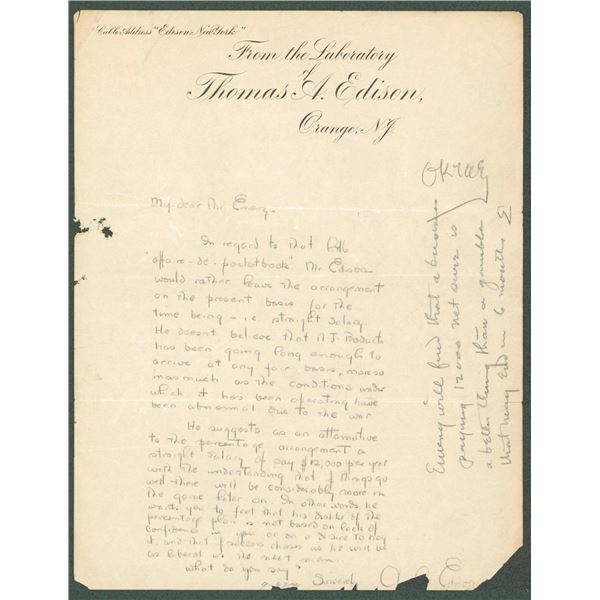 "Cable Address "Edison, New York"
From the Laboratory
of
Thomas A. Edison,
Orange, N.J.
My dear Mr. Emery,
In regard to that little
"affaire-de-pocketbook" Mr. Edison
would rather leave the arrangement
on the present basis for the
time being - i.e. straight salary.
He doesn't believe that N.J. Products
has been going long enough to
arrive at any fair basis, more so
inasmuch as the conditions under
which it has been operating have
been abnormal due to the war
He suggests, as an alternative
to the percentage arrangement a
straight salary of say $12,000 per year
with the understanding that if things go
well there will be considerably more in
the game later on. In other words, he
wants you to feel that his dislike of the
percentage plan is not based on lack of
confidence in you or on a desire to hog
it and that if success chases us he will be
as liberal as the next man.
What do you say?
Sincerely
Emery will find that a business
paying 12000 net sure is
a better thing than a gamble
that may end in 6 months E